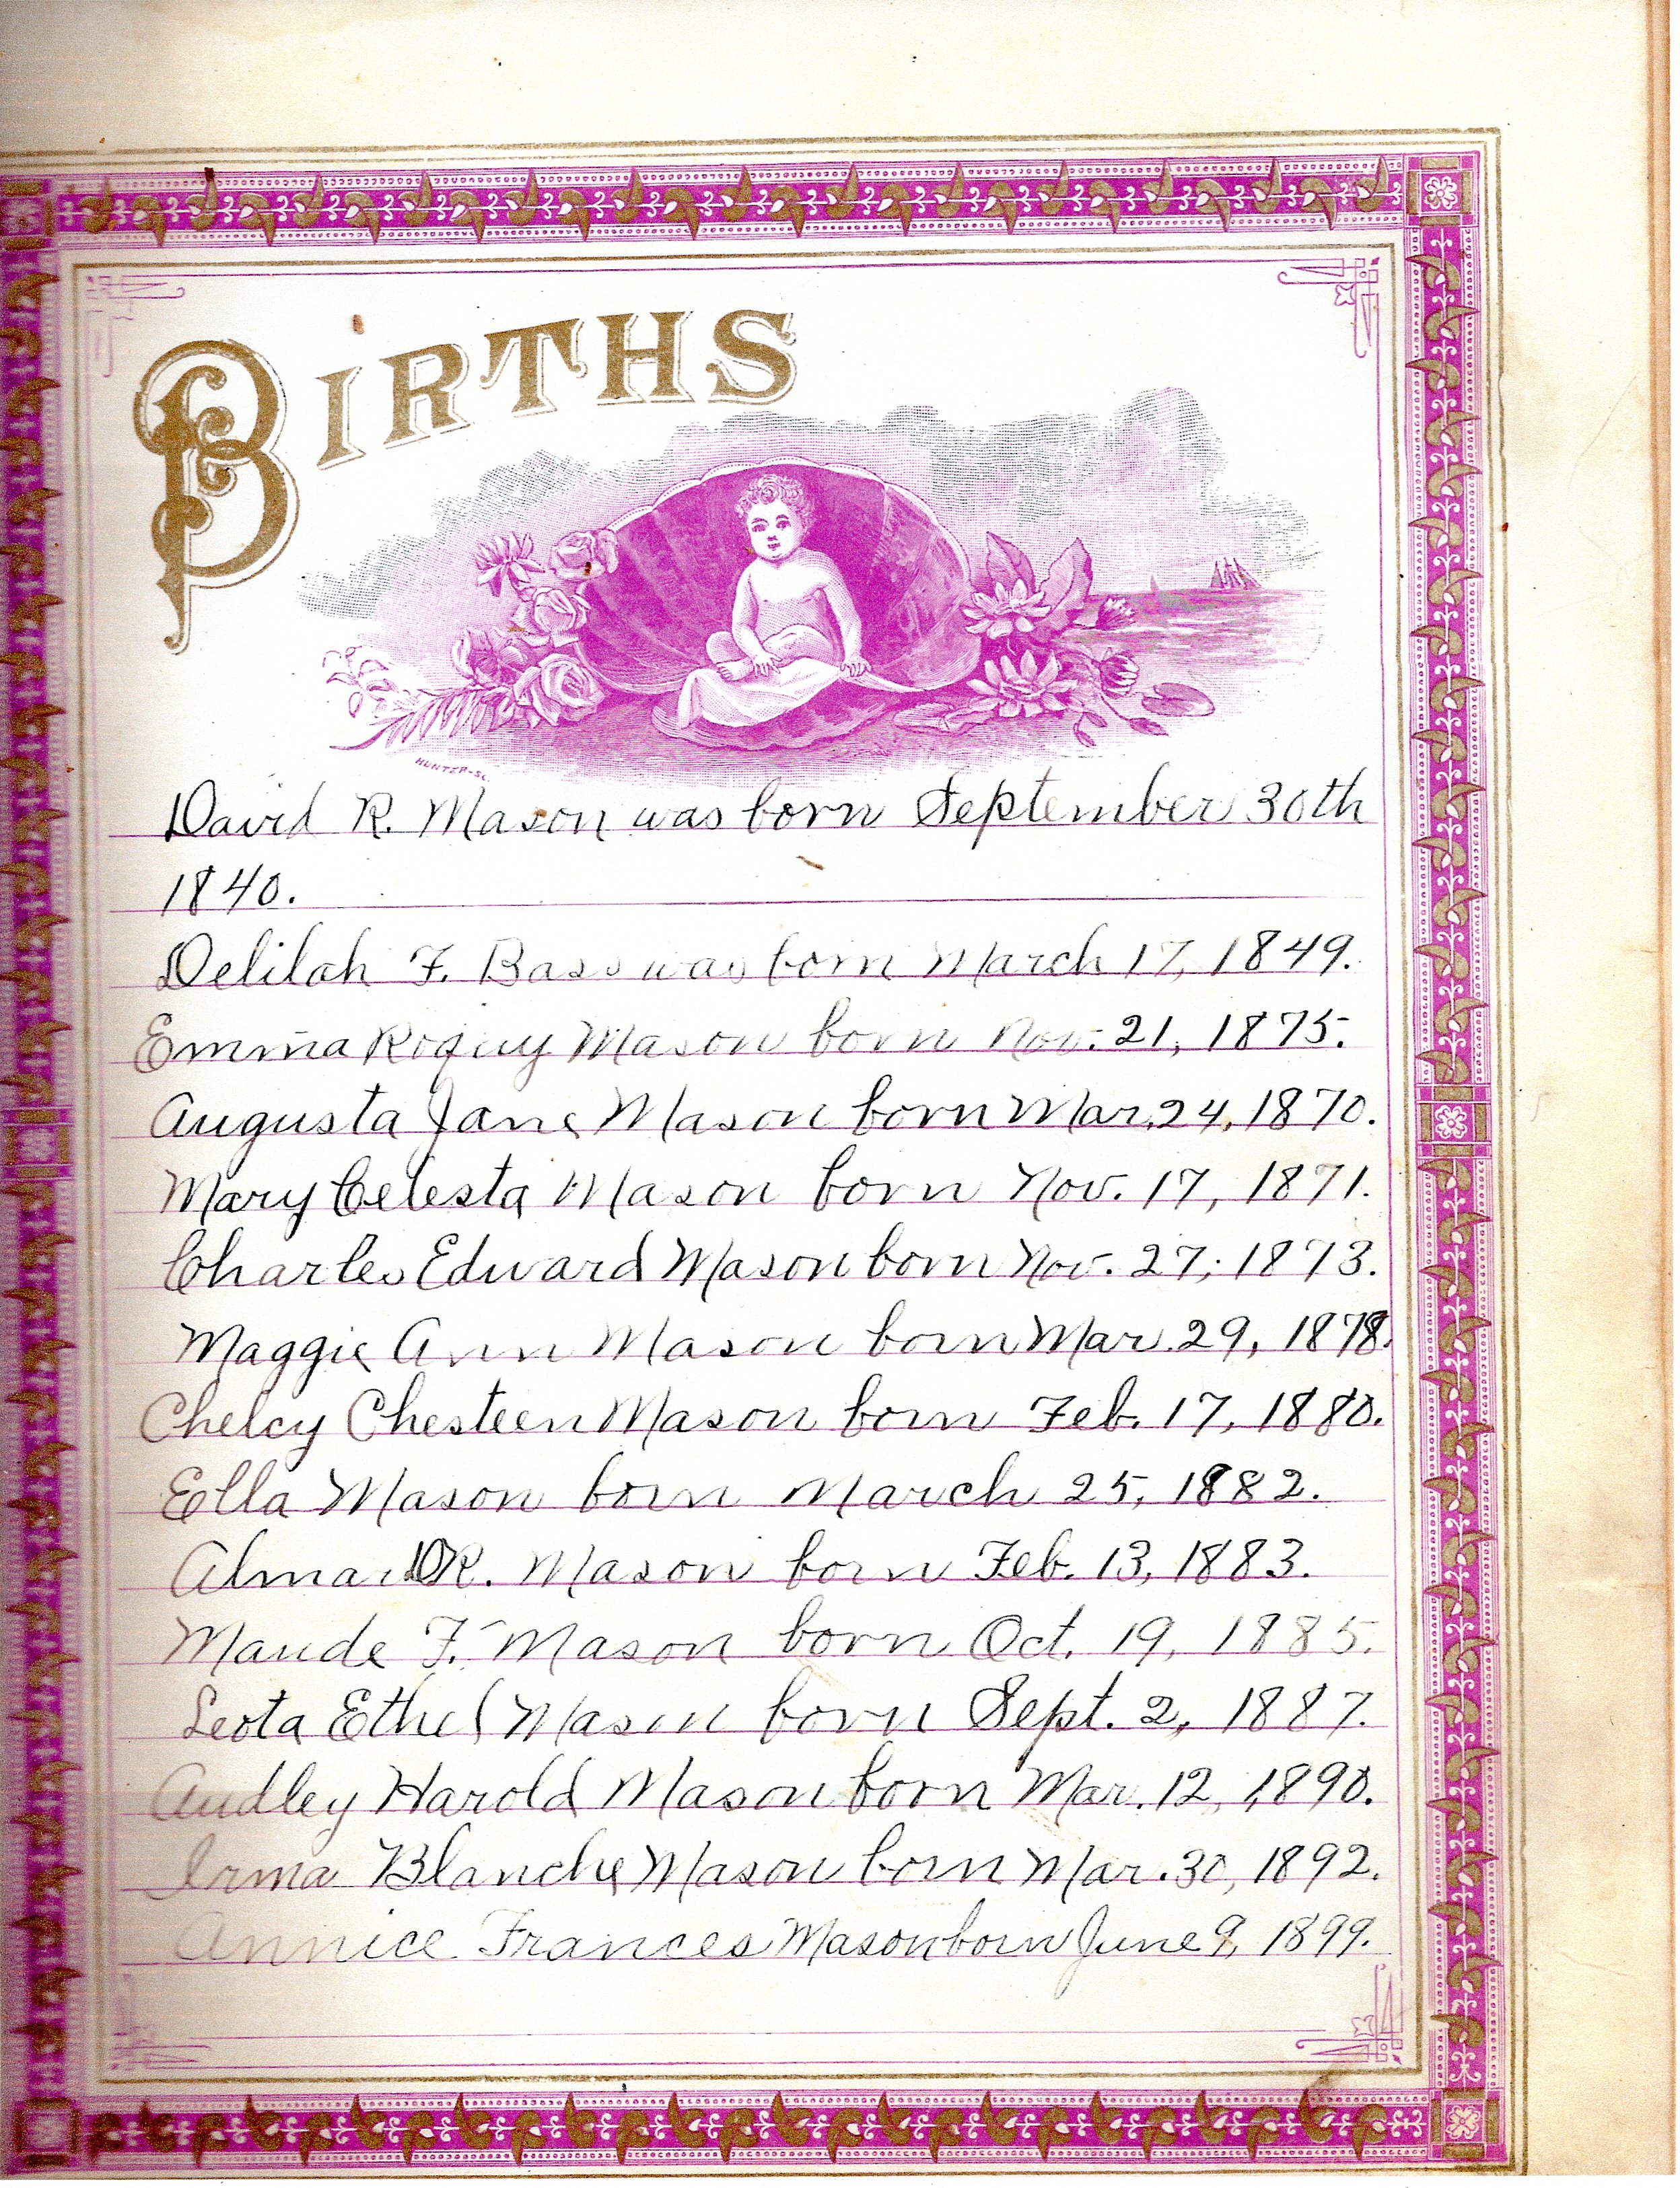 BIRTHS
HUNTER-SC
David R. Mason was born September 30th
1840.
Delilah F. Bass was born March 17, 1849.
Emma Mason born Nov. 21, 1875.
Augusta Jane Mason born Mar. 24, 1870.
Mary Celesta Mason born Nov. 17, 1871.
Charles Edward Mason born Nov. 27, 1873.
Maggie Ann Mason born Mar. 29, 1878.
Chelcy Chesteen Mason born Feb. 17, 1880.
Ella Mason born March 25, 1882.
R. Mason born Feb. 13, 1883.
Maude F. Mason born Oct. 19, 1885.
Leota Ethel Mason born Sept. 2, 1887.
Audley Harold Mason born Mar. 12, 1890.
Irma Blanche Mason born Mar. 30, 1892.
Annice Frances Mason born June 9, 1899.